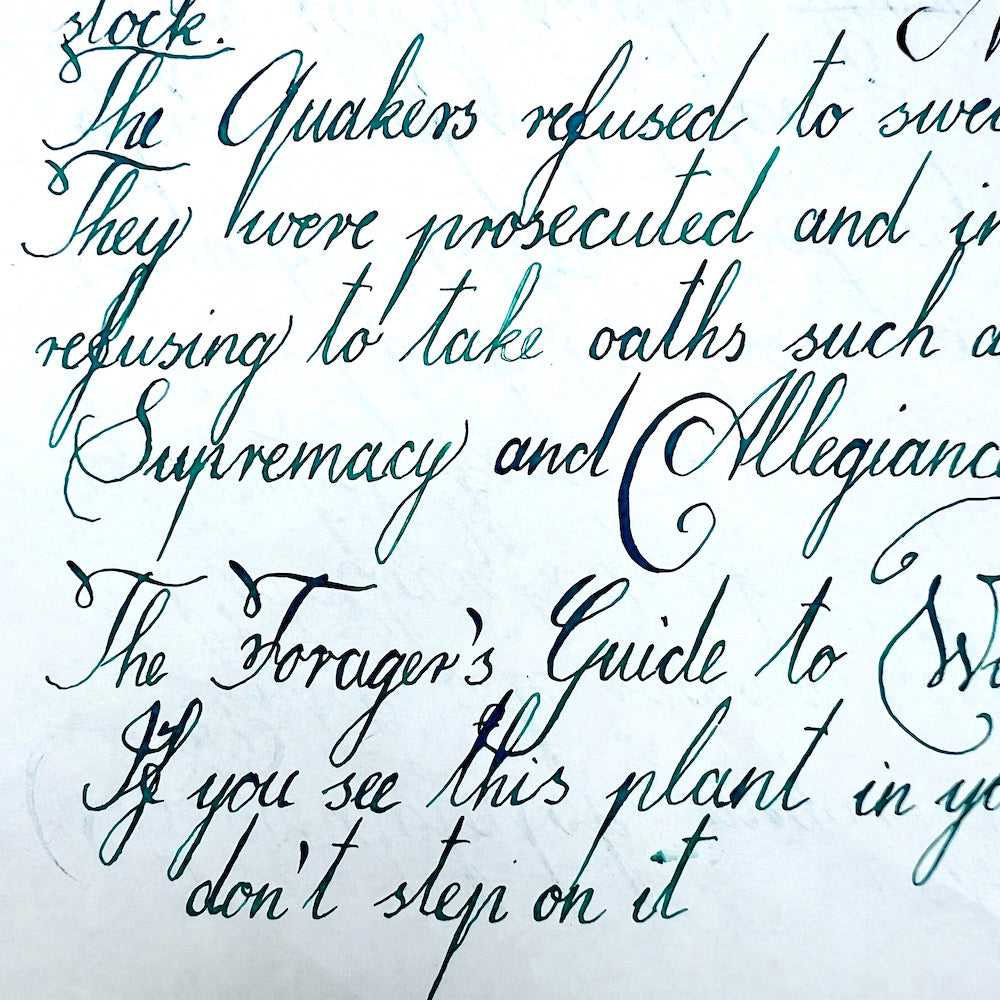 stock.
The Quakers refused to swea
They were prosecuted and in
refusing to take oaths such a
Supremacy and Allegianc
The Forager's Guide to Wi
If you see this plant in yo
don't step on it